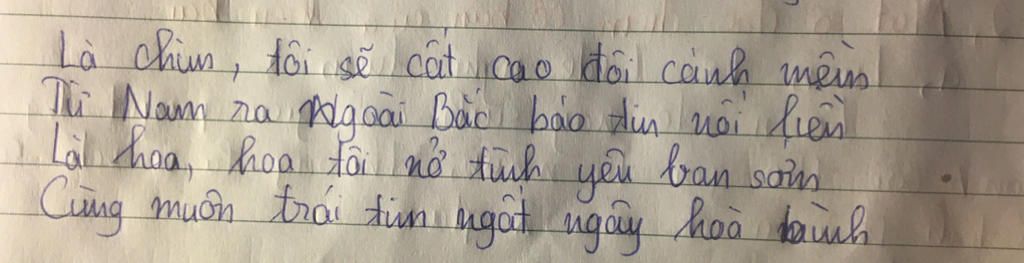 Là chim, tôi sẽ cất cao đôi cánh mềm
Từ Nam ra Ngoài Bắc báo tin nối liền
Là hoa, hoa tôi nở tình yêu ban sớm
Cùng muôn trái tim ngất ngây hoà bình